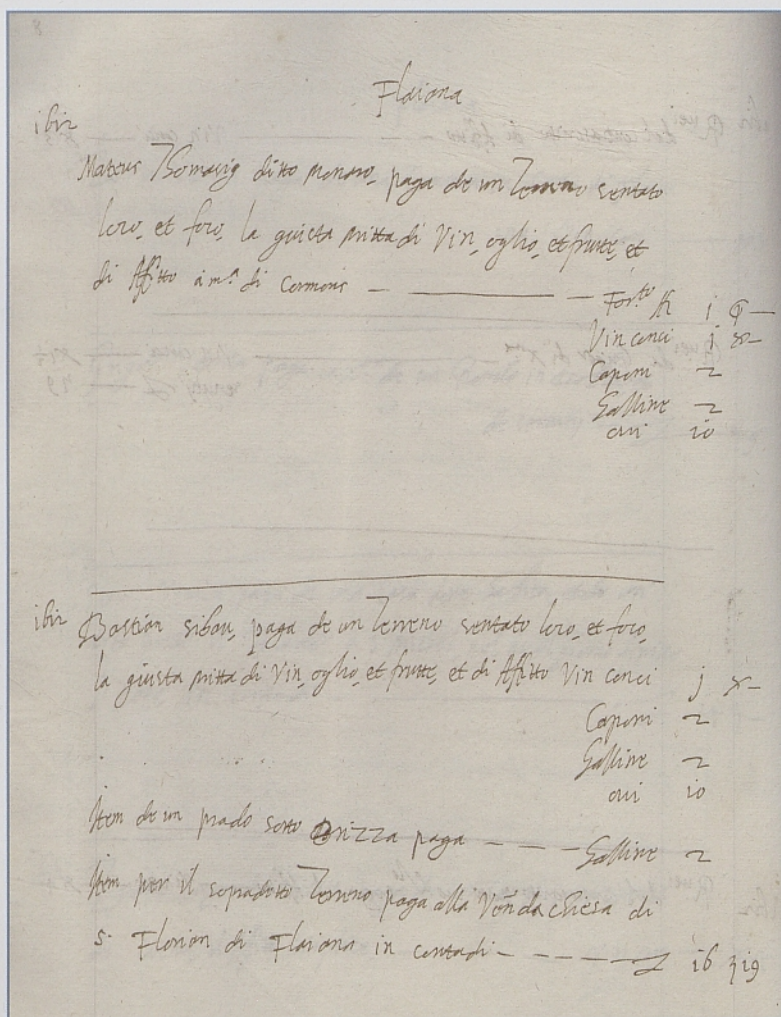 8
Flaiana
ibi
Mateus Thomasig ditto monaro, paga de un Terreno sentato
loco, et foco, la giusta mitta di Vin, oglio, et frutte, et
di Affitto a m.ª di Cormons — For.to St. i q —
Vin conci j
Caponi 2
Galline 2
ovi io
ibi
Bastian sibau, paga de un Terreno sentato loco, et foco,
la giusta mitta di Vin, oglio, et frutte, et di Affitto Vin conci j
Caponi 2
Galline 2
ovi io
Item de un prado sotto paga — — — Galline 2
Item per il sopradetto Terreno paga alla Ven.da chiesa di
S. Florian di Flaiana in contadi — — — — i6